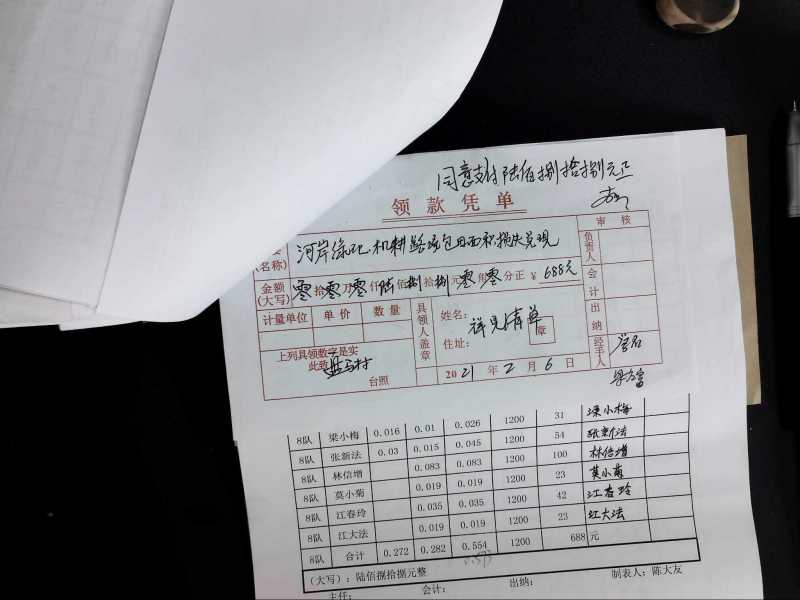 同意支付陆佰捌拾捌元正
领款凭单
审核
(名称) 河岸绿化机耕路承包田面积损失兑现
负责人
金额(大写) 零拾零万零仟陆佰捌拾捌元零角零分正 ¥ 688元
会计
计量单位 单价 数量
具领人盖章
姓名: 详见清单
章
住址:
出纳
上列具领数字是实
此致
台照
2021年2月6日
经手人
8队 梁小梅 0.016 0.01 0.026 1200 31 梁小梅
8队 张新法 0.03 0.015 0.045 1200 54 张新法
8队 林信增 0.083 0.083 1200 100 林信增
8队 莫小菊 0.019 0.019 1200 23 莫小菊
8队 江春玲 0.035 0.035 1200 42 江春玲
8队 江大法 0.019 0.019 1200 23 江大法
8队 合计 0.272 0.282 0.554 1200 688 元
(大写):陆佰捌拾捌元整
主任: 会计: 出纳: 制表人:陈大友